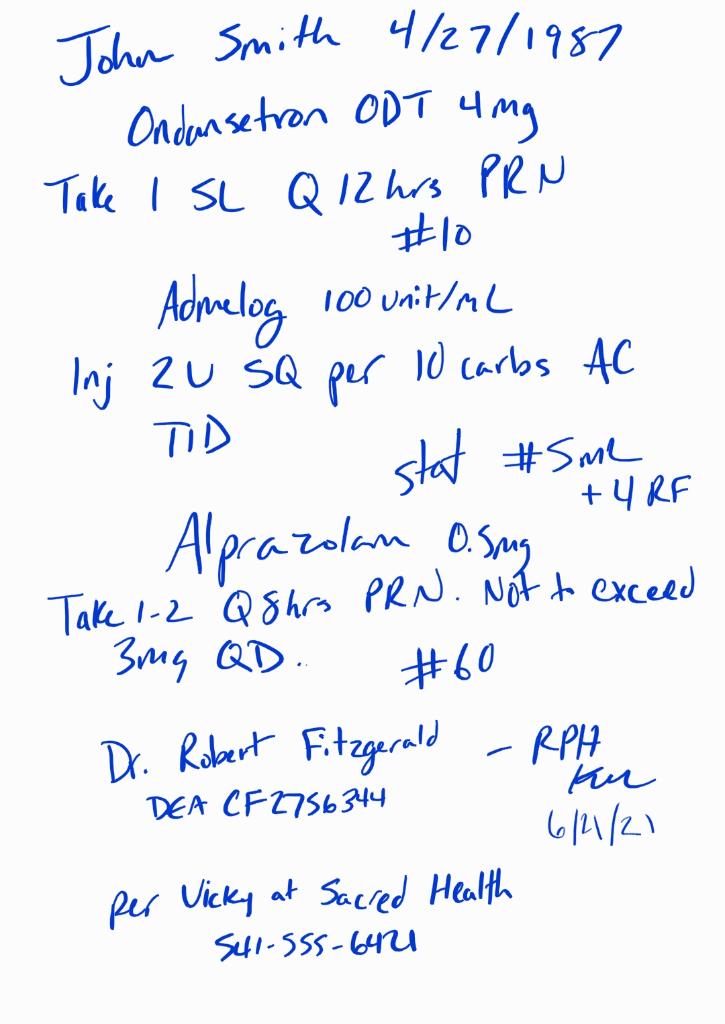 John Smith 4/27/1987
Ondansetron ODT 4mg
Take 1 SL Q 12hrs PRN
#10
Admelog 100 unit/mL
Inj 2U SQ per 10 carbs AC
TID
stat #5mL
+ 4 RF
Alprazolam 0.5mg
Take 1-2 Q 8hrs PRN. Not to exceed
3mg QD.
#60
Dr. Robert Fitzgerald - RPH
DEA CF2756344
6/21/21
per Vicky at Sacred Health
541-555-6421